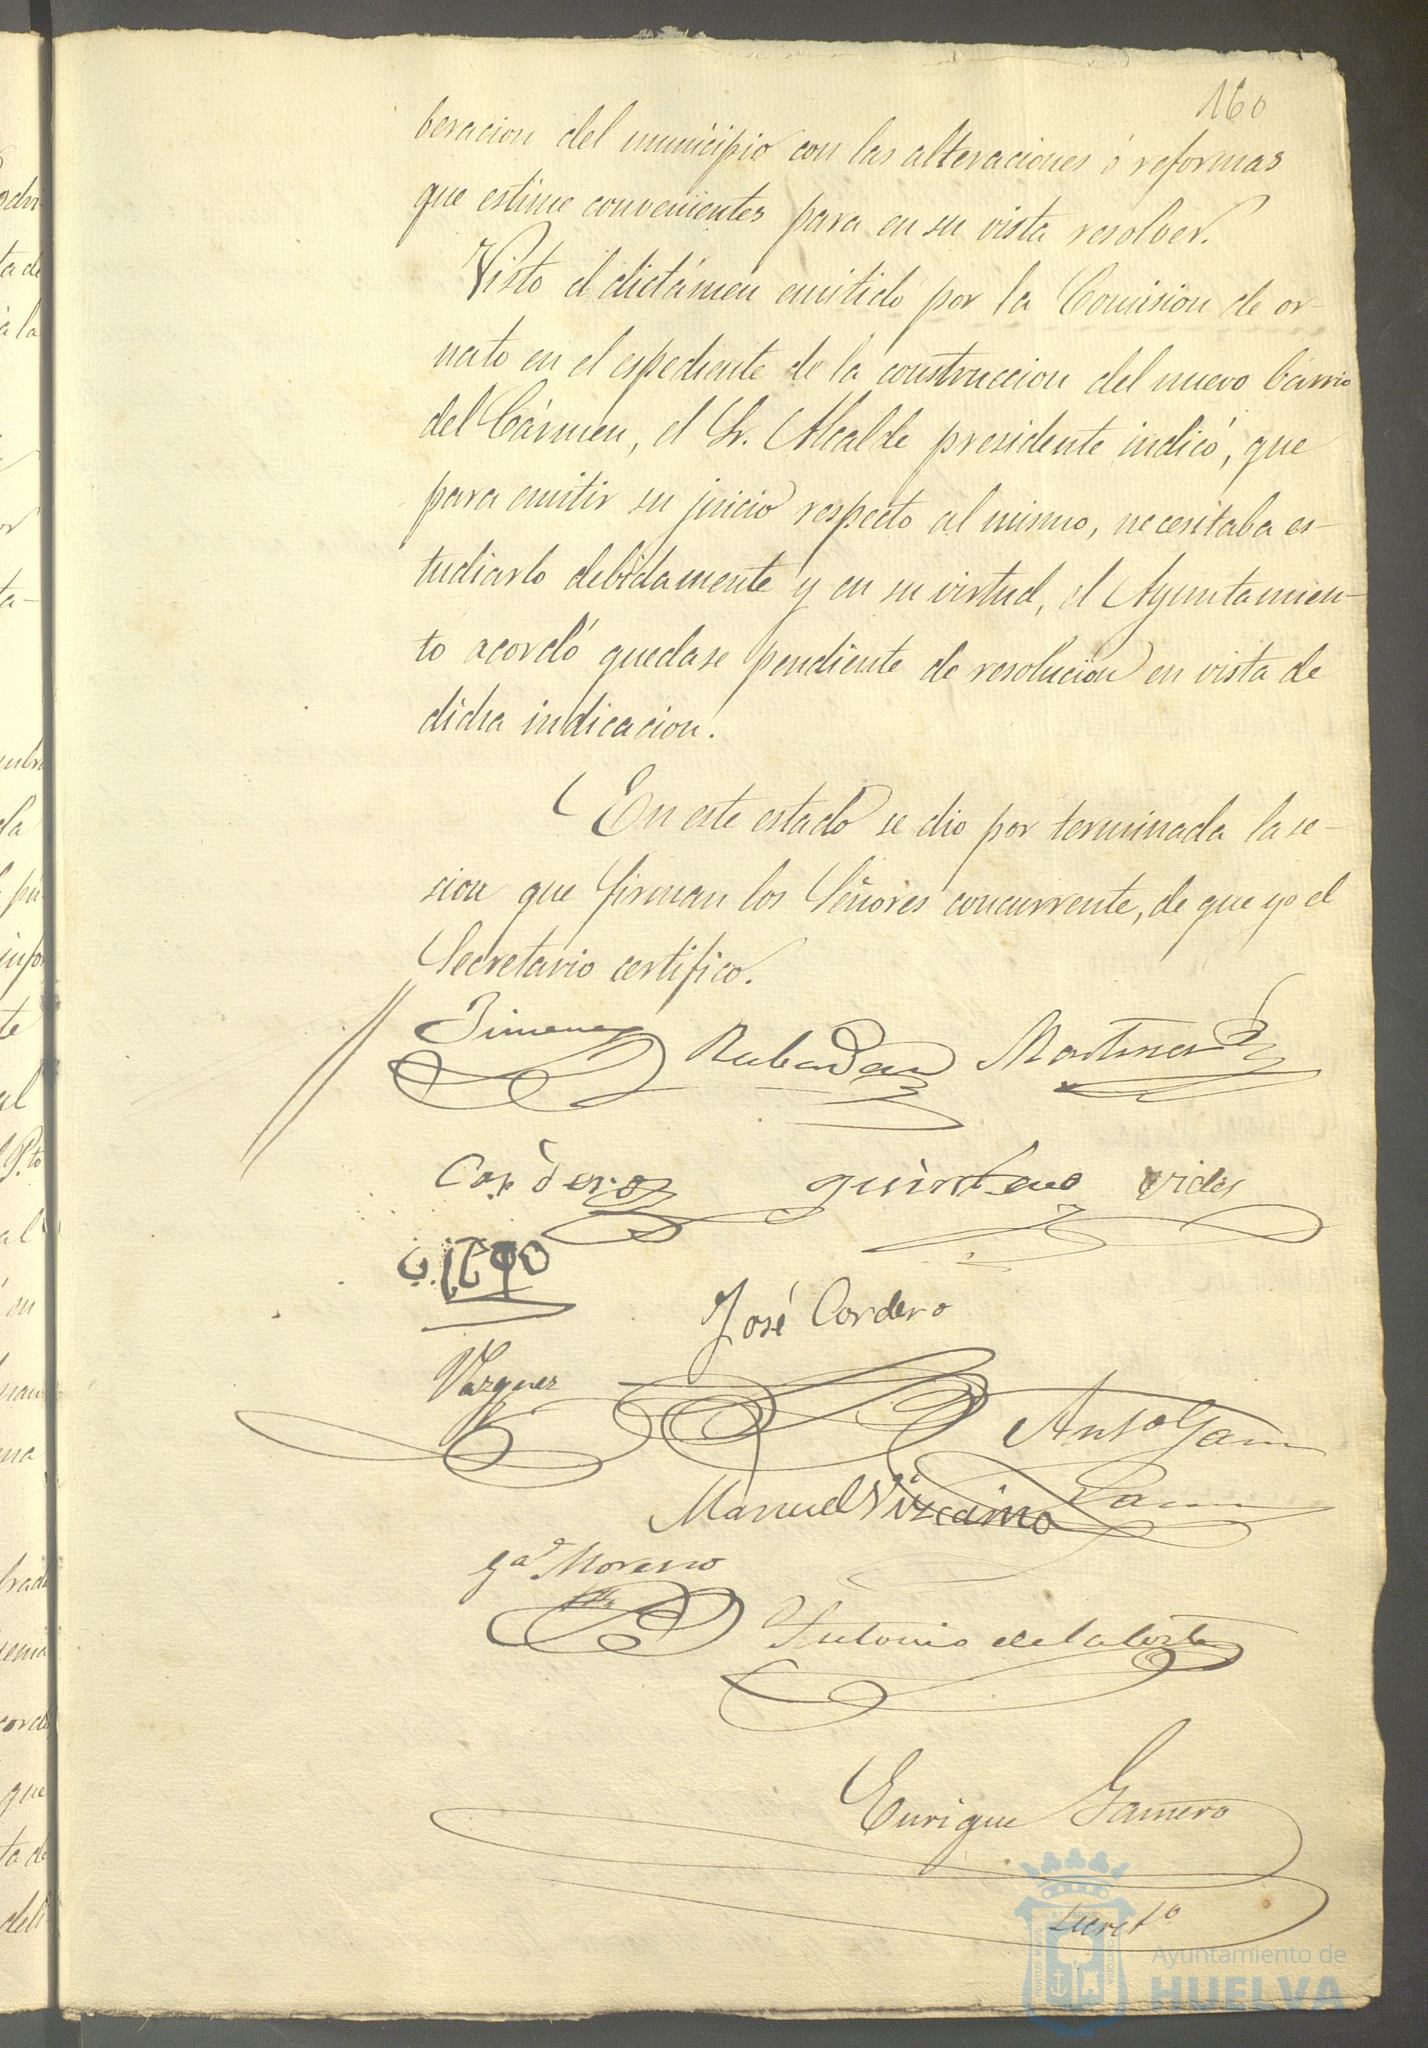 160
beracion del municipio con las alteraciones ó reformas
que estime convenientes para en su vista resolver.
Visto el dictámen emitido por la Comision de or-
nato en el espediente de la construccion del nuevo barrio
del Cármen, el Sr. Alcalde presidente indicó, que
para emitir su juicio respecto al mismo, necesitaba es-
tudiarlo debidamente y en su virtud, el Ayuntamien-
to acordó quedase pendiente de resolucion en vista de
dicha indicacion.
En este estado se dio por terminada la se-
sion que firman los Señores concurrente, de que yo el
Secretario certifico.
Jimenez Rubardau Martinez
Cordero quintero vides
José Cordero
Vazquez
Antº Garcia
Manuel Vizcaino
Gª Moreno
Antonio de la Corte
Enrique Gamero
Secretº
Ayuntamiento de
HUELVA